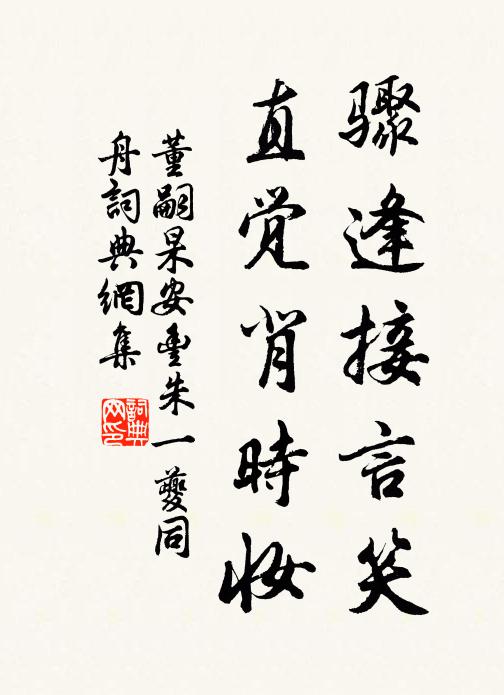 驟逢接言笑
直覚背時妝
董嗣杲安豊朱一夔同
舟詞典網集
詞典
网印